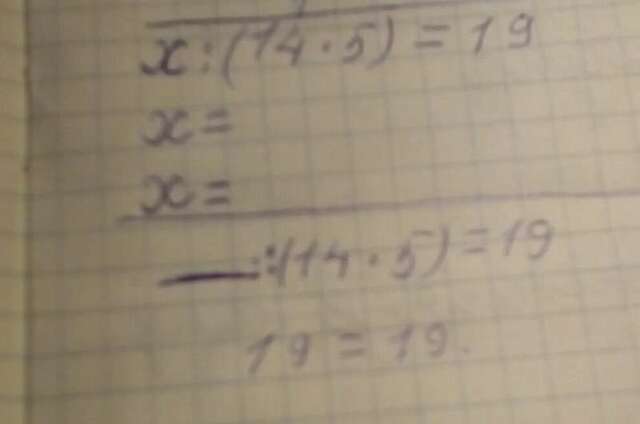 x:(14·5)=19
x=
x=
:(14·5)=19
19=19.